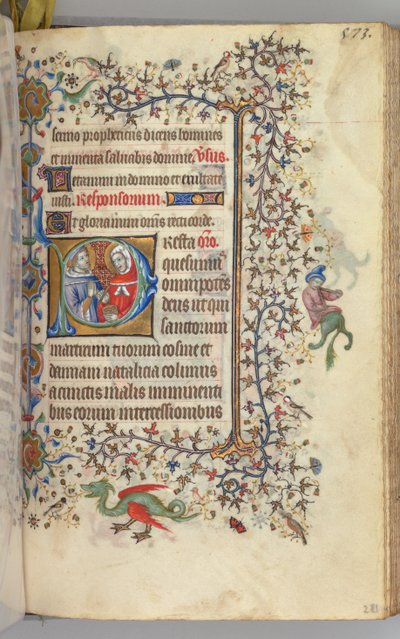 573.
sermo propheticus dicens homines
et iumenta saluabis domine Vsus.
Letamini in domino et exultate
iusti. Responsorium.
Et gloriamini om̄s recti corde.
Presta Oro.
quesumus
omnipotēs
deus ut qui
sanctorum
martirum tuorum cosme et
damiani natalicia colimus
a cunctis malis imminenti
bus eorum intercessionibus
281